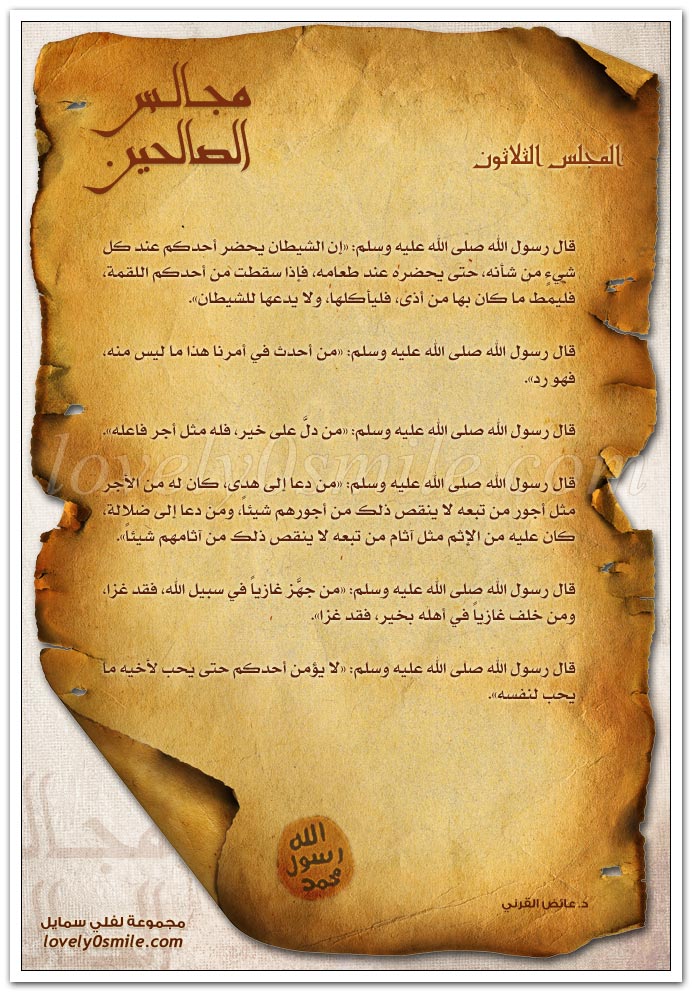 مجالس
الصالحين
المجلس الثلاثون
قال رسول الله صلى الله عليه وسلم: «إن الشيطان يحضر أحدكم عند كل
شيءٍ من شأنه، حتى يحضره عند طعامه، فإذا سقطت من أحدكم اللقمة،
فليمط ما كان بها من أذى، فليأكلها، ولا يدعها للشيطان».
قال رسول الله صلى الله عليه وسلم: «من أحدث في أمرنا هذا ما ليس منه،
فهو رد».
قال رسول الله صلى الله عليه وسلم: «من دلَّ على خير، فله مثل أجر فاعله».
lovely0smile.com
قال رسول الله صلى الله عليه وسلم: «من دعا إلى هدى، كان له من الأجر
مثل أجور من تبعه لا ينقص ذلك من أجورهم شيئاً، ومن دعا إلى ضلالة،
كان عليه من الإثم مثل آثام من تبعه لا ينقص ذلك من آثامهم شيئاً».
قال رسول الله صلى الله عليه وسلم: «من جهَّز غازياً في سبيل الله، فقد غزا،
ومن خلف غازياً في أهله بخير، فقد غزا».
قال رسول الله صلى الله عليه وسلم: «لا يؤمن أحدكم حتى يحب لأخيه ما
يحب لنفسه».
الله
رسول
محمد
د.عائض القرني
مجموعة لفلي سمايل
lovely0smile.com